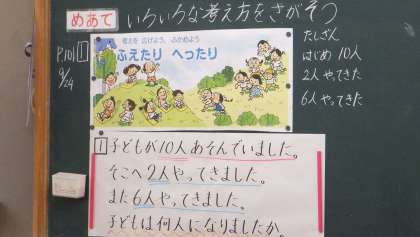 めあて いろいろな考え方をさがそう
P101 1
9/24
考えを 広げよう、ふかめよう
ふえたり へったり
たしざん
はじめ 10人
2人 やってきた
6人 やってきた
1 子どもが10人あそんでいました。
そこへ2人やってきました。
また6人やってきました。
子どもは何人になりましたか。